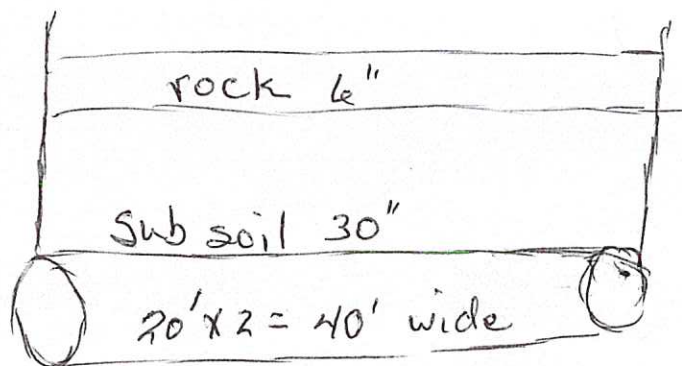 rock 6"
Sub soil 30"
20' x 2 = 40' wide